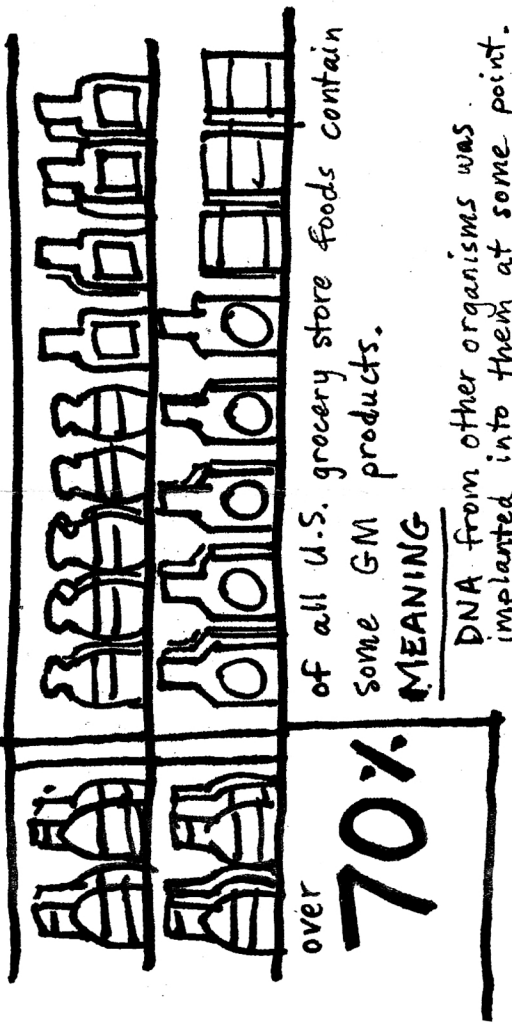 over
70%
of all U.S. grocery store foods contain
some GM products.
MEANING
DNA from other organisms was
implanted into them at some point.